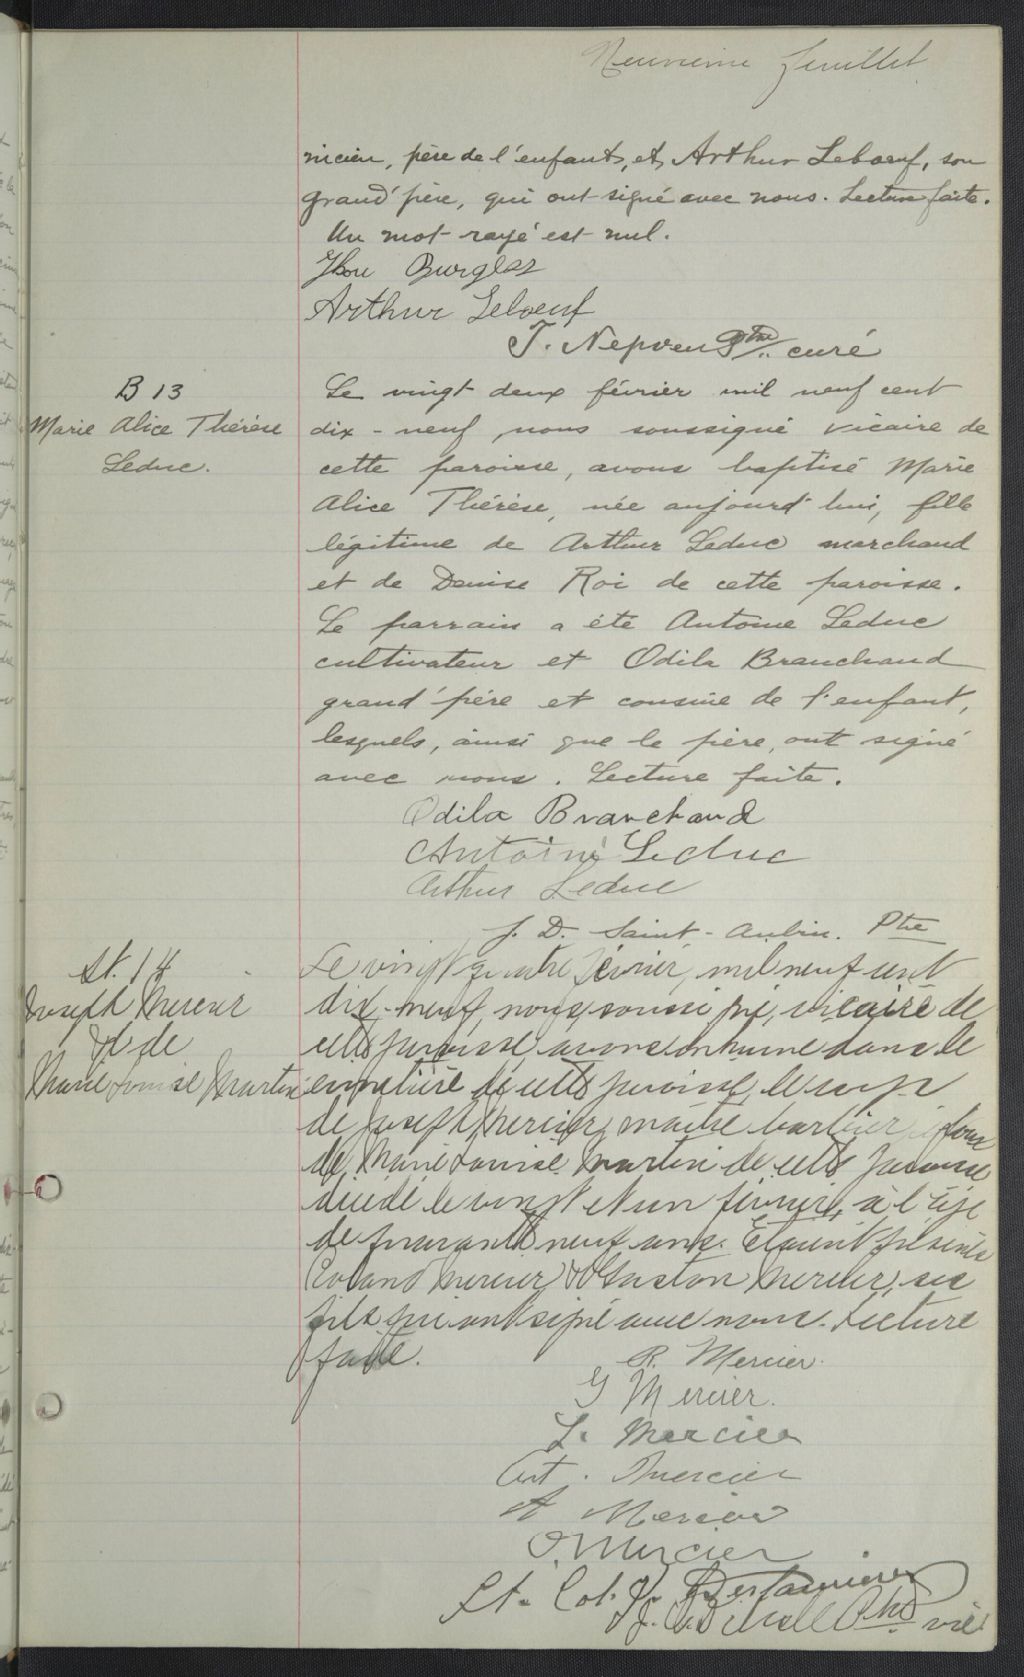 Neuvieme feuillet
nicien, père de l'enfant, et Arthur Leboeuf, son
grand'père, qui ont signé avec nous. Lecture faite.
Un mot rayé est nul.
Burgess
Arthur Leboeuf
J. Nepveu Ptre curé
B 13
Marie Alice Thérèse
Leduc.
Le vingt deux février mil neuf cent
dix-neuf nous soussigné vicaire de
cette paroisse, avons baptisé Marie
Alice Thérèse, née aujourd'hui, fille
légitime de Arthur Leduc marchand
et de Denise Roi de cette paroisse.
Le parrain a été Antoine Leduc
cultivateur et Odila Branchaud
grand'père et cousine de l'enfant,
lesquels, ainsi que le père, ont signé
avec nous. Lecture faite.
Odila Branchaud
Antoine Leduc
Arthur Leduc
J. D. Saint-Aubin. Ptre
St. 14
Joseph Mercier
de
Marie Louise Martin
Le vingt quatre février, mil neuf cent
dix-neuf, nous, soussigné, vicaire de
cette paroisse, avons inhumé dans le
cimetière de cette paroisse, le corps
de Joseph Mercier, maître barbier, époux
de Marie Louise Martin de cette paroisse
décédé le vingt et un février, à l'âge
de quarante neuf ans. Etaient présents
Roland Mercier & Gaston Mercier, ses
fils qui ont signé avec nous. Lecture
faite.
R. Mercier.
G Mercier.
L. Mercier
Art. Mercier
A Mercier
O. Mercier
Lt. Col. J. Desrosiers
Ptre vic